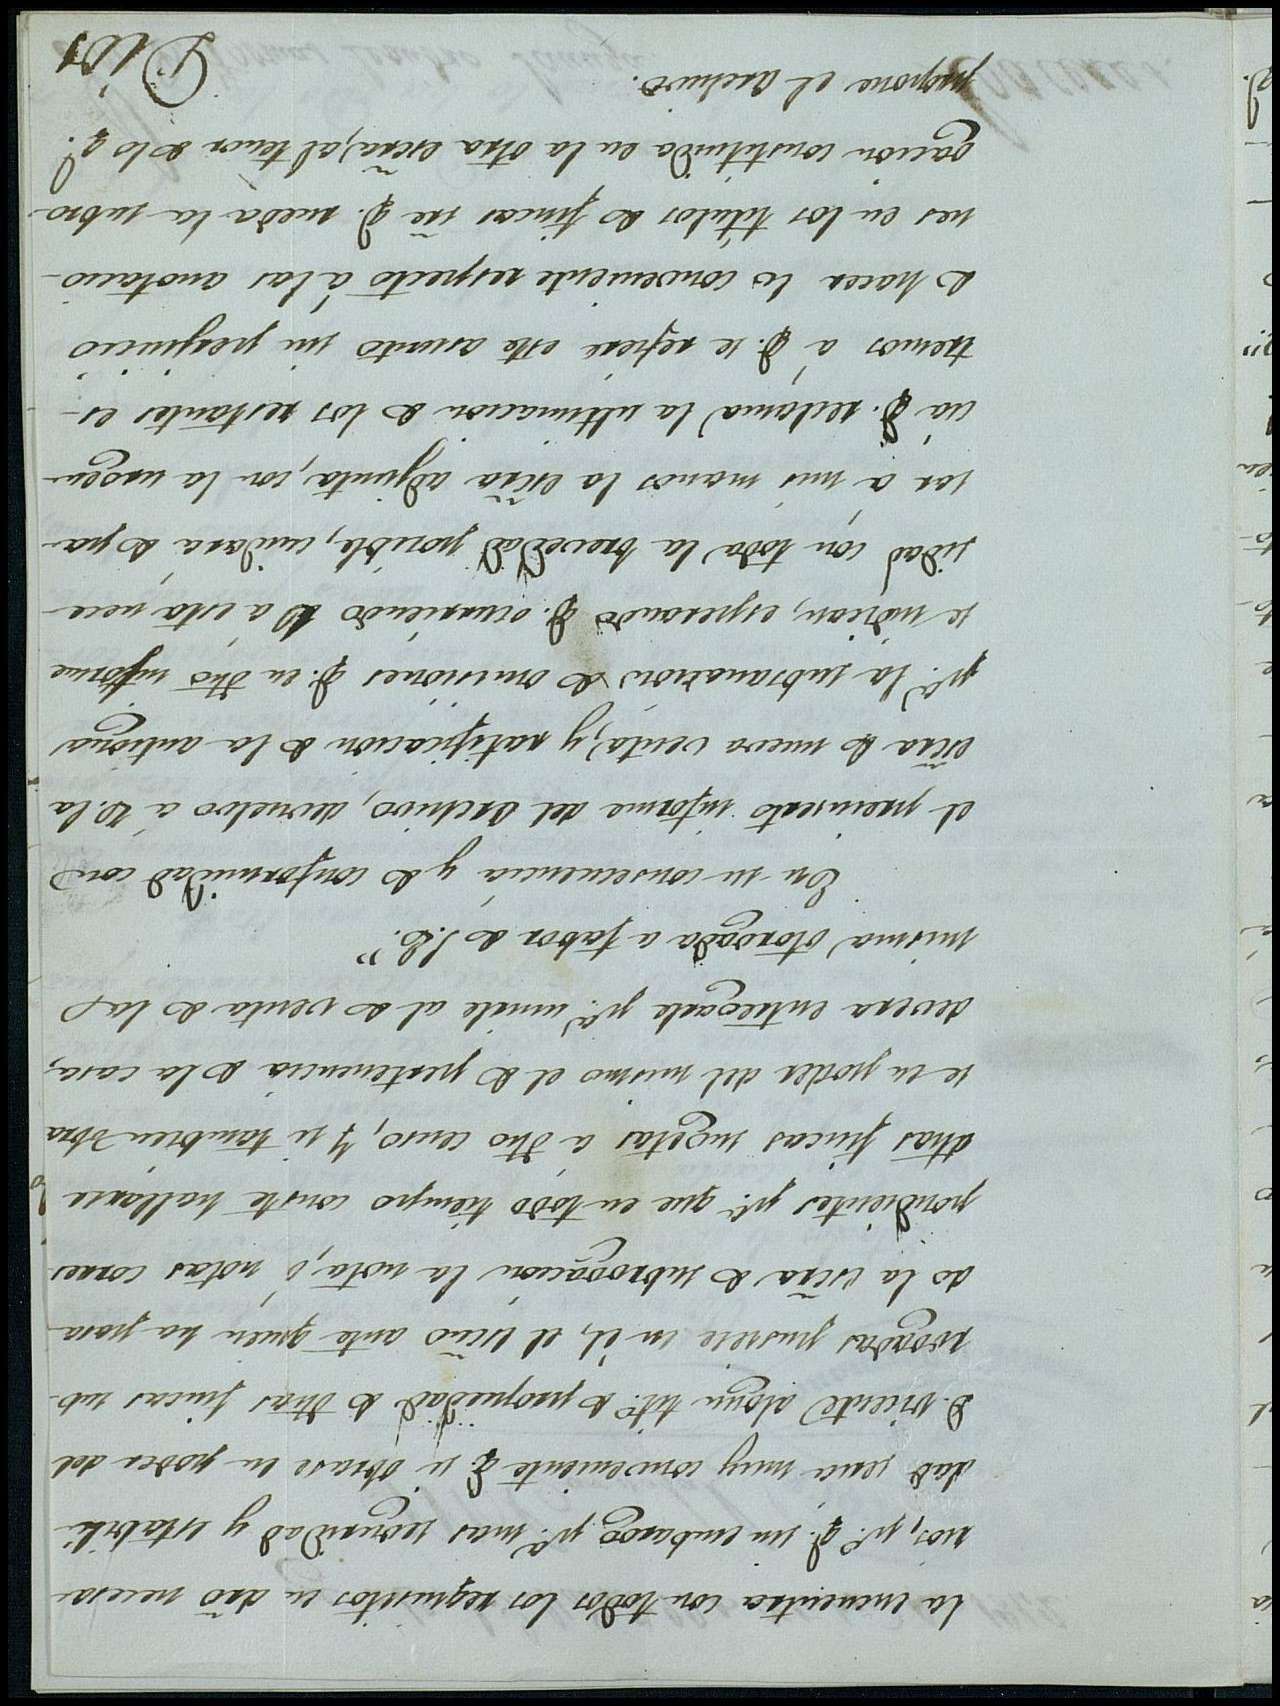 la encuentra con todos los requisitos en dro necesa-
rios, pr. q. sin embargo pa. mas seguridad y estabili-
dad seria muy conveniente q. si obrase en poder del
D. Vicente algun tito. de propiedad de dhas fincas sub-
rogadas pusiese en él, el Escno ante quien ha pasa-
do la escra de subrogacion la nota, ó notas corres
pondientes pa. que en todo tiempo conste hallarse
dhas fincas sugetas a dho censo, Y si tambien obra
se en poder del mismo el de pertenencia de la casa,
devera entregarle pa. unirle al de venta de la
misma otorgada a fabor de S.E."
En su consecuencia y de conformidad con
el preinserto informe del Archivo, devuelvo á V. la
escra de nueva venta, y ratificacion de la antigua
pa. la subsanacion de omisiones q. en dho informe
se indican, esperando q. ocurriendo V. a esta nece-
sidad con toda la brevedad posible, cuidará de pa-
sar a mis manos la escra adjunta, con la urgen-
cia q. reclama la ultimacion de los restantes es-
tremos á q. se refiere este asunto sin perjuicio
de hacer lo conveniente respecto á las anotacio-
nes en los titulos de fincas sre q. rueda la subro-
gacion constituida en la otra escra, al tenor de lo q.
propone el Archivo.
Dios